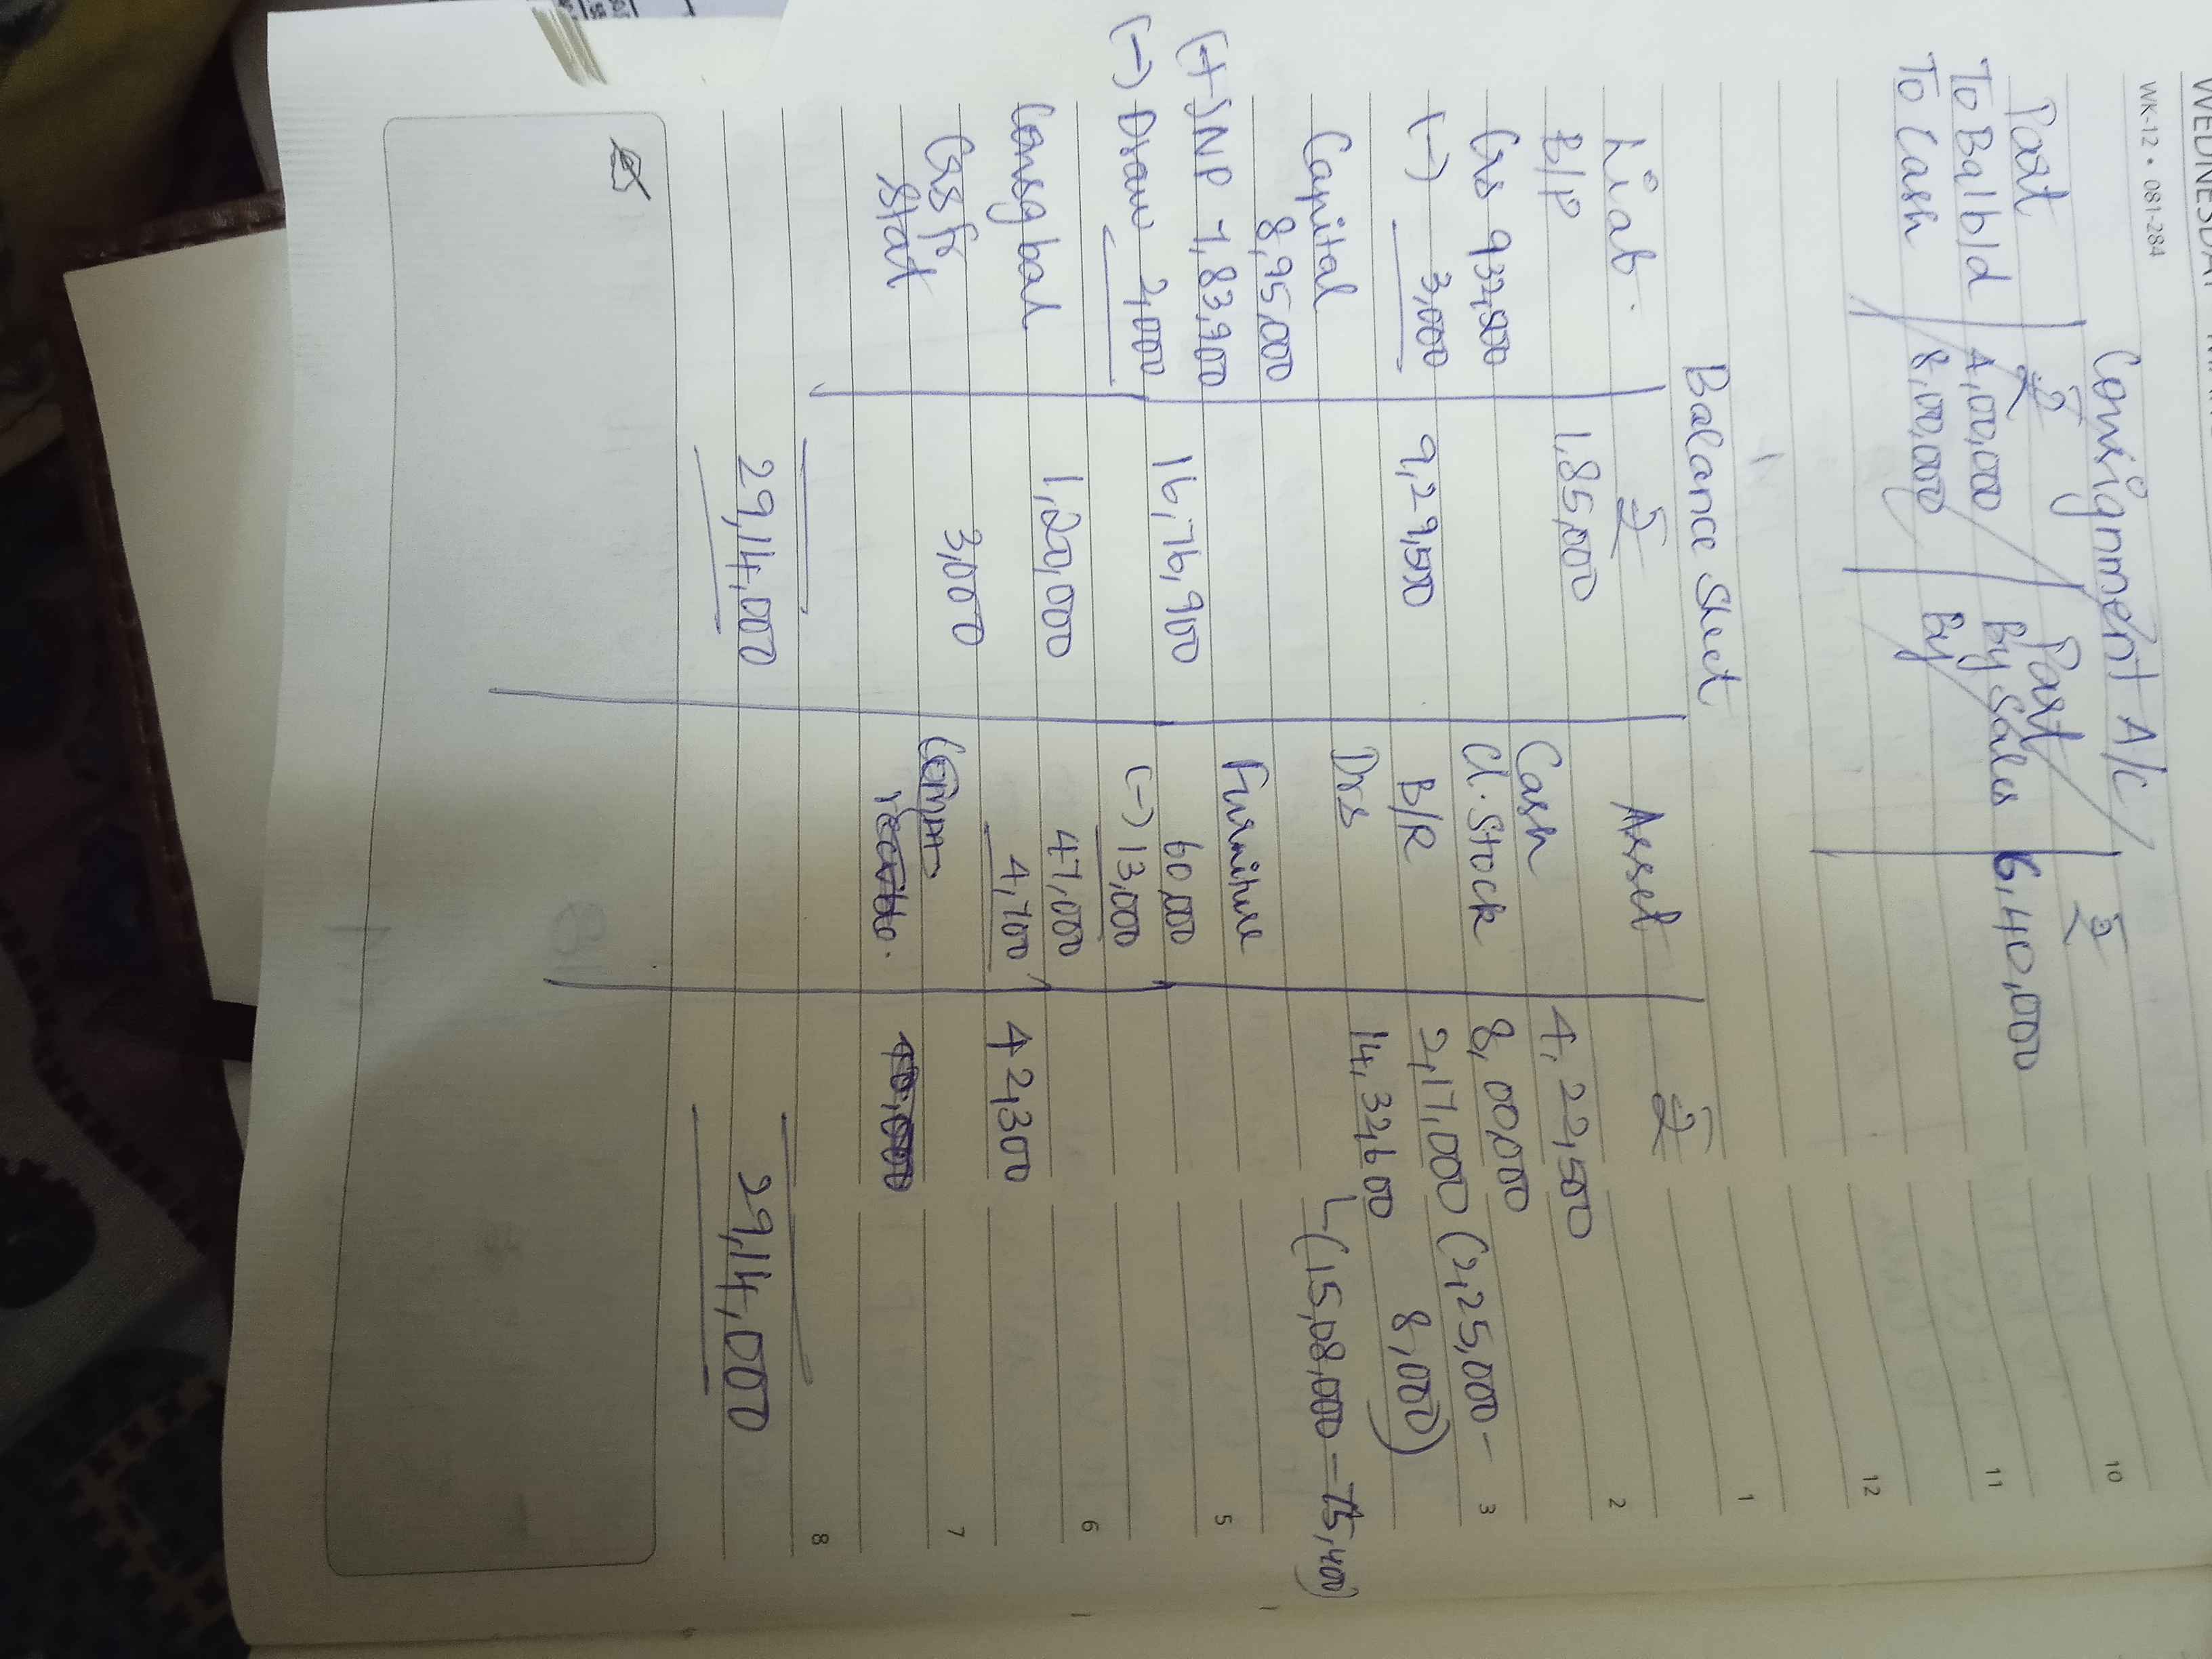 WEDNESDAY
WK-12 • 081-284
Consignment A/c
Part ₹ Part ₹
To Bal b/d 4,00,000 By Sales 6,40,000
To Cash 8,00,000 By
Balance Sheet
Liab. ₹ Asset ₹
B/P 1,85,000 Cash 4,22,500
Crs 932,500 Cl. Stock 8,00,000
(-) 3,000 9,29,500 B/R 2,17,000 (2,25,000 - 8,000)
Capital Drs 14,32,600 (15,08,000 - 75,400)
8,95,000
(+) NP 7,83,900 16,76,900 Furniture 60,000
(-) Draw 2,000 (-) 13,000
47,000
Consg bal 1,20,000 4,700 42,300
Crs fr Stat 3,000
29,14,000 29,14,000
10
11
12
1
2
3
5
6
7
8